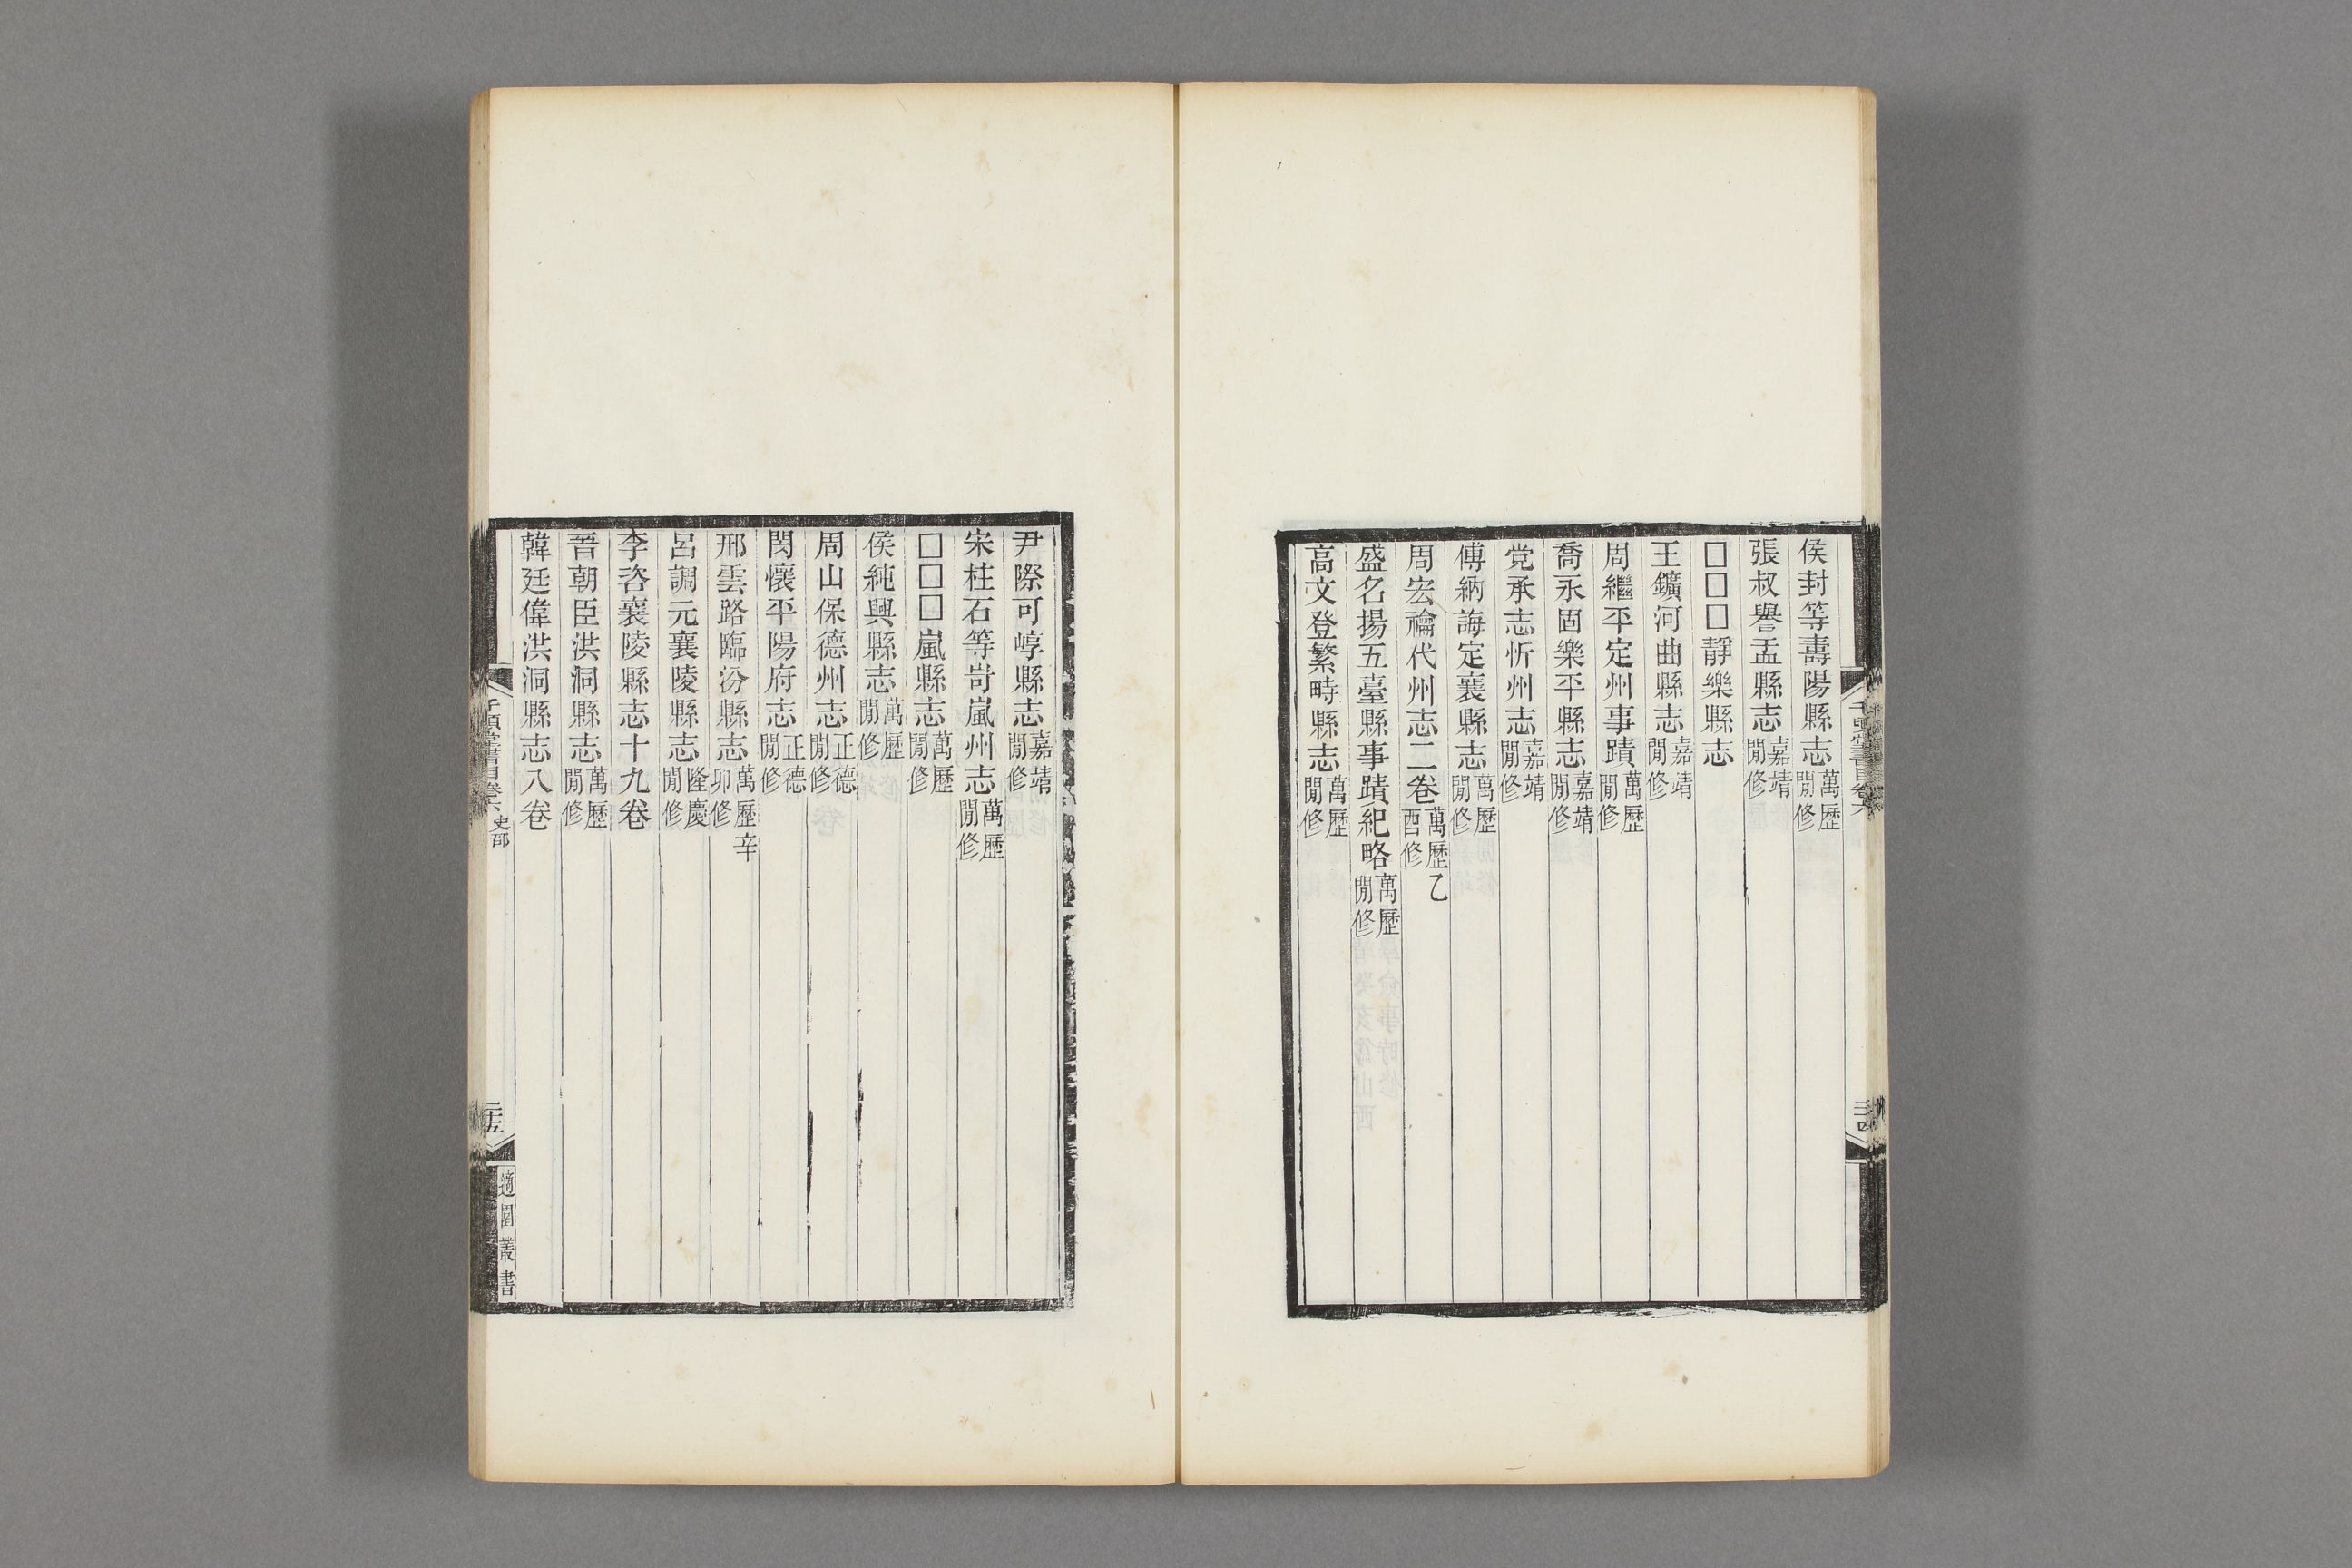 侯封等壽陽縣志萬歷閒修
張叔譽盂縣志嘉靖閒修
□□□靜樂縣志
王鑛河曲縣志嘉靖閒修
周繼平定州事蹟萬歷閒修
喬永固樂平縣志嘉靖閒修
党承志忻州志嘉靖閒修
傅納誨定襄縣志萬歷閒修
周宏禴代州志二卷萬歷乙酉修
盛名揚五臺縣事蹟紀略萬歷閒修
高文登繁畤縣志萬歷閒修
尹際可崞縣志嘉靖閒修
宋柱石等岢嵐州志萬歷閒修
□□□嵐縣志萬歷閒修
侯純興縣志萬歷閒修
周山保德州志正德閒修
閔懷平陽府志正德閒修
邢雲路臨汾縣志萬歷辛卯修
呂調元襄陵縣志隆慶閒修
李咨襄陵縣志十九卷
晉朝臣洪洞縣志萬歷閒修
韓廷偉洪洞縣志八卷
千頃堂書目卷六 史部
二十五
適園叢書